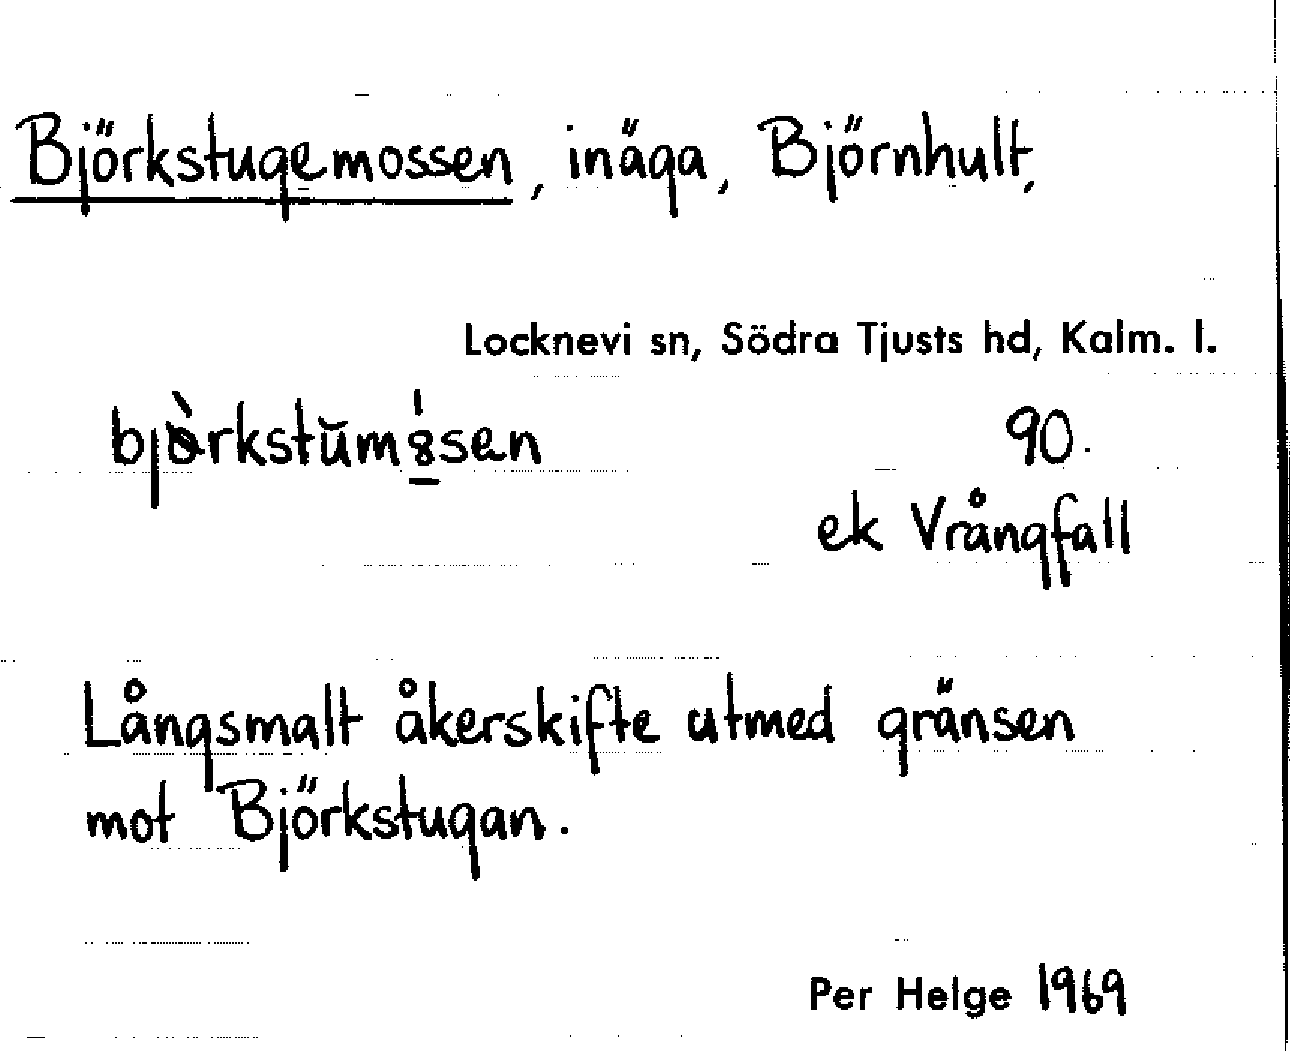 Björkstugemossen, inäga, Björnhult,
Locknevi sn, Södra Tjusts hd, Kalm. l.
90.
ek Vrångfall
Långsmalt åkerskifte utmed gränsen
mot Björkstugan.
Per Helge 1969